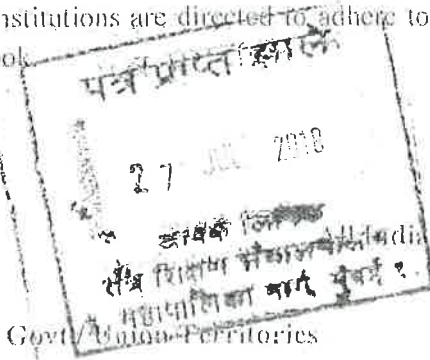 nstitutions are directed to adhere to
ok
पत्र प्राप्ति झाले
27 2018
लिपिक
All India
तंत्र शिक्षण संचालनालय
महापालिका मार्ग मुंबई १.
Govt/Union Territories